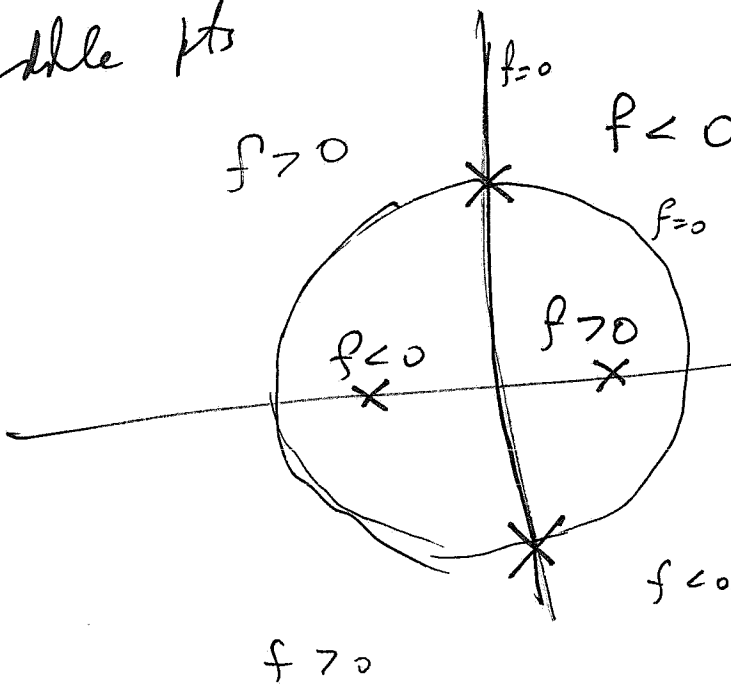 pts
f=0
f > 0
f < 0
f=0
f < 0
f > 0
f < 0
f > 0